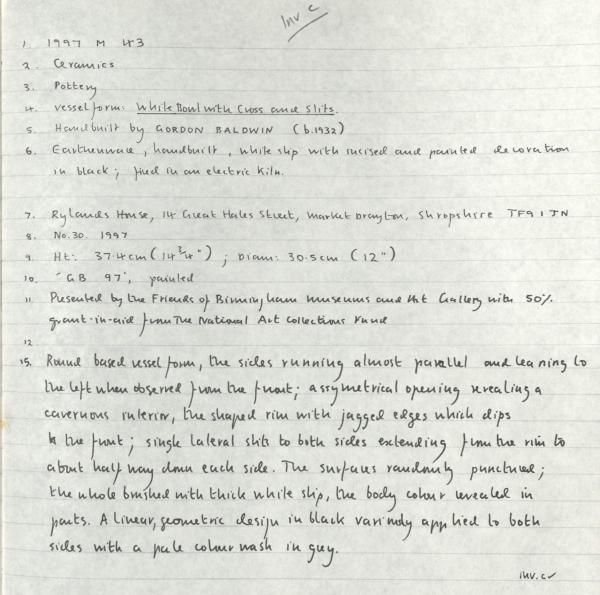 Inv c
1. 1997 M 43
2. Ceramics
3. Pottery
4. vessel form: White Bowl with Cross and Slits.
5. Handbuilt by GORDON BALDWIN (b.1932)
6. Earthenware, handbuilt, white slip with incised and painted decoration
in black; fired in an electric kiln.
7. Rylands House, 14 Great Hales Street, Market Drayton, Shropshire TF9 1JN
8. No.30. 1997
9. Ht: 37.4cm (14 3/4"); Diam: 30.5cm (12")
10. "GB 97", painted
11. Presented by the Friends of Birmingham Museums and Art Gallery with 50%
grant-in-aid from The National Art Collections Fund
12
15. Round based vessel form, the sides running almost parallel and leaning to
the left when observed from the front; assymetrical opening revealing a
cavernous interior, the shaped rim with jagged edges which dips
to the front; single lateral slits to both sides extending from the rim to
about half way down each side. The surfaces randomly punctured;
the whole brushed with thick white slip, the body colour revealed in
parts. A linear, geometric design in black variously applied to both
sides with a pale colour wash in grey.
inv. c✓